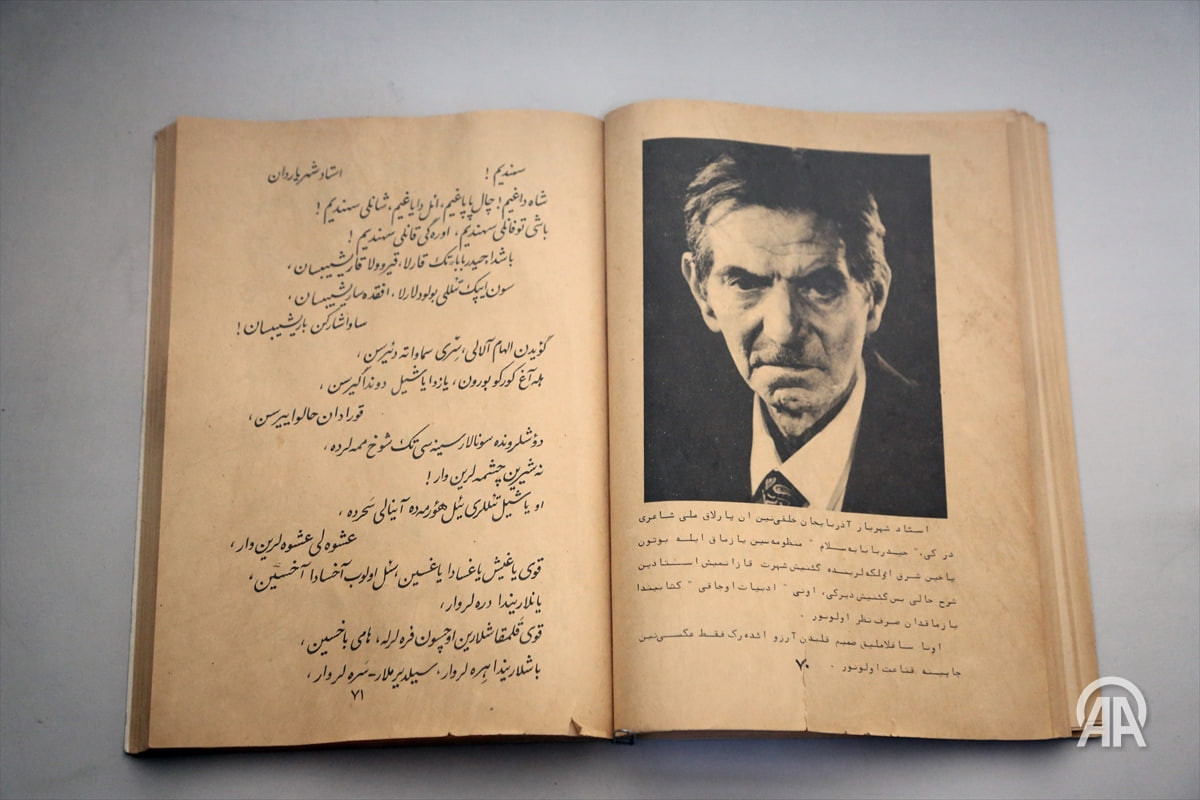 استاد شهریار آذربایجان خلقی‌نین ان پارلاق ملی شاعری
در کی، " حیدربابایه سلام " منظومه‌سین یازماق ایله بوتون
یاخین شرق اولکه‌لرینده گئنیش شهرت قازانمیش استادین
شرح حالی بس گئنیش دیرکی، اونی " ادبیات اوجاقی " کتابیندا
یازماقدان صرف‌نظر اولونور .
اونا ساغلاملیق صمیم قلبدن آرزو ائده‌رک فقط عکسی‌نین
چاپینه قناعت اولونور .
۷۰
سهندیم !
استاد شهریاردان
شاه داغیم! چال پاپاغیم، ائل دایاغیم، شانلی سهندیم !
باشی توفانلی سهندیم، اوره‌گی قانلی سهندیم !
باشدا حیدربابا تک قارلا، قیروولا قاریشیبسان،
سون ایپک تئللی بولودلارلا، افقده ساریشیبسان،
ساواشارکن باریشیبسان !
گؤیدن الهام آلالی، سّری سماواته دئیرسن،
هله آغ کورکو بورون، یازدا یاشیل دوندا گیرسن،
قورادان حالوا ییرسن،
دؤشلرونده سونالار سینه‌سی تک شوخ ممه‌لرده،
نه شیرین چشمه‌لرین وار !
او یاشیل تئللری یئل هئورمه‌ده آینالی سَحرده،
عشوه‌لی عشوه‌لرین وار،
قوی یاغیش یاغسادا یاغسین، سئل اولوب آخسادا آخسین،
یانلاریندا دره‌لر وار،
قوی قلمقاشلارین اوچسون فره‌لرله، هامی باخسین،
باشلاریندا هِره‌لر وار، سیلدیریملار-سَره‌لر وار،
۷۱
AA